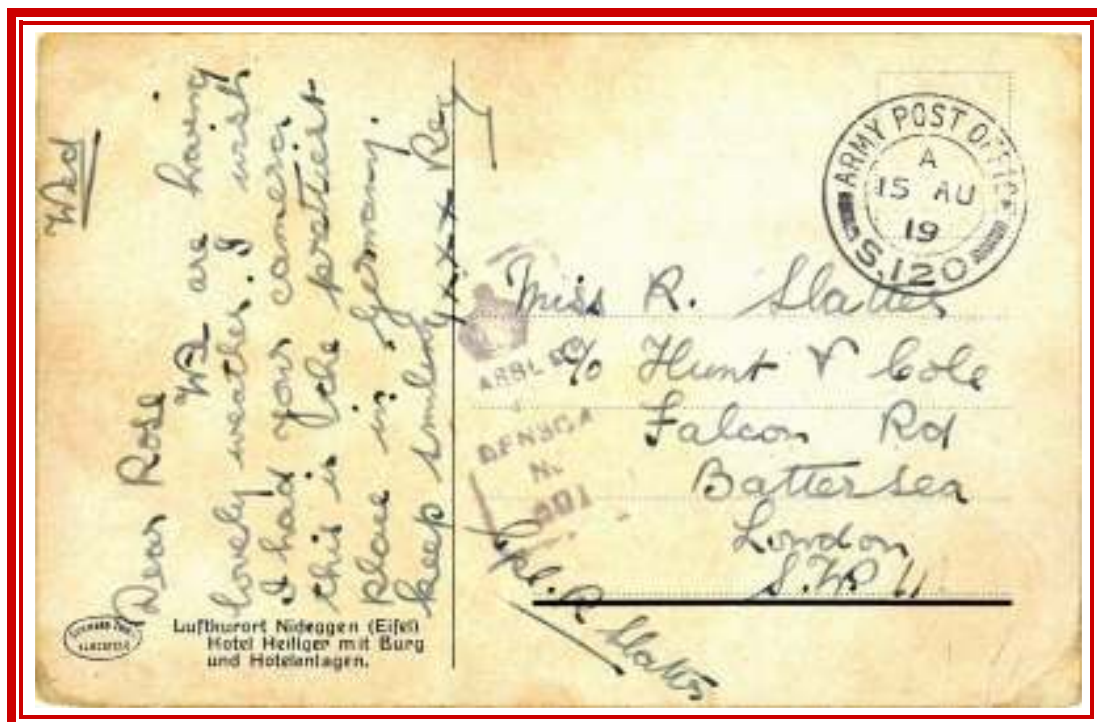 Wed
Dear Rose
We are having
lovely weather. I wish
I had your camera
this is the prettiest
place in Germany.
keep smiling xxx Reg
Luftkurort Nideggen (Eifel)
Hotel Heiliger mit Burg
und Hotelanlagen.
ARMY POST OFFICE
A
15 AU
19
S.120
Miss R. Slatter
c/o Hunt & Cole
Falcon Rd
Battersea
London
S.W. 11
Cpl. R Slatter